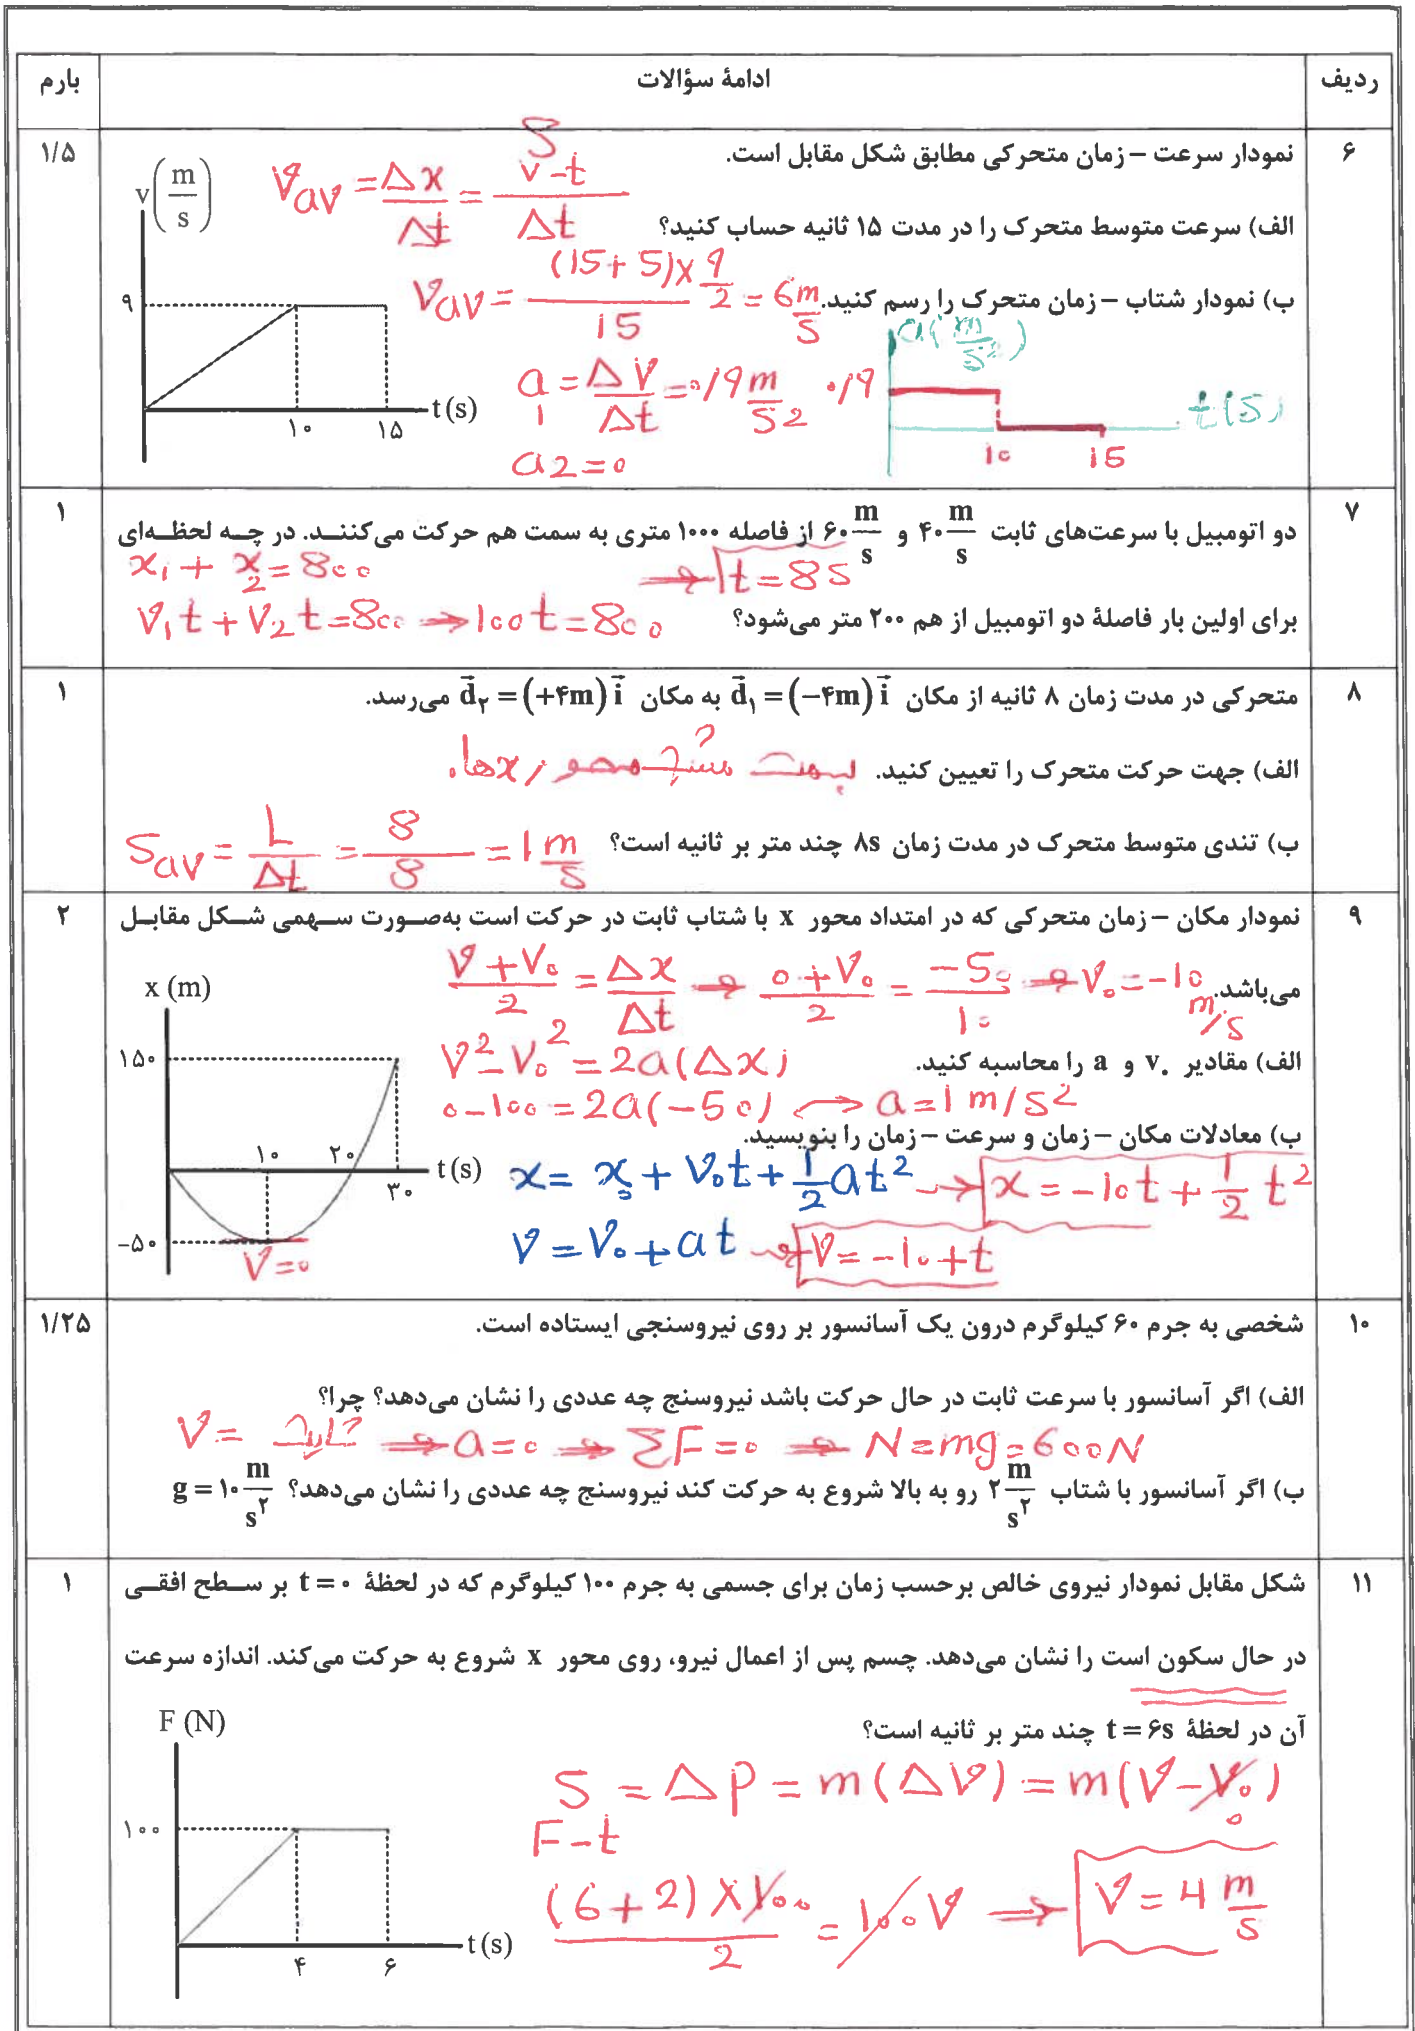 ردیف ادامهٔ سؤالات بارم
۶ نمودار سرعت – زمان متحرکی مطابق شکل مقابل است. ۱/۵
v(m/s)
V_av = Δx/Δt = S v-t/Δt
الف) سرعت متوسط متحرک را در مدت ۱۵ ثانیه حساب کنید؟
V_av = (15+5)×9/2 / 15 = 6 m/s
ب) نمودار شتاب – زمان متحرک را رسم کنید.
۹
۱۰ ۱۵ t(s)
a1 = ΔV/Δt = 0/9 m/s2
a2 = 0
a(m/s2)
0/9
10 15 t(s)
۷ دو اتومبیل با سرعت‌های ثابت ۴۰ m/s و ۶۰ m/s از فاصله ۱۰۰۰ متری به سمت هم حرکت می‌کنند. در چه لحظه‌ای ۱
x1 + x2 = 800 → t = 8s
برای اولین بار فاصلهٔ دو اتومبیل از هم ۲۰۰ متر می‌شود؟
V1t + V2t = 800 → 100t = 800
۸ متحرکی در مدت زمان ۸ ثانیه از مکان d⃗۱ = (−۴m) i⃗ به مکان d⃗۲ = (+۴m) i⃗ می‌رسد. ۱
الف) جهت حرکت متحرک را تعیین کنید. بسمت مثبت محور xها.
ب) تندی متوسط متحرک در مدت زمان ۸s چند متر بر ثانیه است؟ S_av = L/Δt = 8/8 = 1 m/s
۹ نمودار مکان – زمان متحرکی که در امتداد محور x با شتاب ثابت در حرکت است به‌صورت سهمی شکل مقابل ۲
می‌باشد.
V+V0/2 = Δx/Δt → 0+V0/2 = -50/10 → V0 = -10 m/s
الف) مقادیر v۰ و a را محاسبه کنید.
V² - V0² = 2a(Δx)
0 - 100 = 2a(-50) → a = 1 m/s2
ب) معادلات مکان – زمان و سرعت – زمان را بنویسید.
x = x0 + V0t + 1/2 at² → x = -10t + 1/2 t²
V = V0 + at → V = -10 + t
x (m)
۱۵۰
۱۰ ۲۰ ۳۰ t(s)
−۵۰
V=0
۱۰ شخصی به جرم ۶۰ کیلوگرم درون یک آسانسور بر روی نیروسنجی ایستاده است. ۱/۲۵
الف) اگر آسانسور با سرعت ثابت در حال حرکت باشد نیروسنج چه عددی را نشان می‌دهد؟ چرا؟
V = ثابت → a = 0 → ΣF = 0 → N = mg = 600N
ب) اگر آسانسور با شتاب ۲ m/s۲ رو به بالا شروع به حرکت کند نیروسنج چه عددی را نشان می‌دهد؟ g = ۱۰ m/s۲
۱۱ شکل مقابل نمودار نیروی خالص برحسب زمان برای جسمی به جرم ۱۰۰ کیلوگرم که در لحظهٔ t = ۰ بر سطح افقی ۱
در حال سکون است را نشان می‌دهد. چسم پس از اعمال نیرو، روی محور x شروع به حرکت می‌کند. اندازه سرعت
آن در لحظهٔ t = ۶s چند متر بر ثانیه است؟
F (N)
۱۰۰
۴ ۶ t(s)
S F-t = ΔP = m(ΔV) = m(V - V0) 0
(6+2)×100/2 = 100V → V = 4 m/s